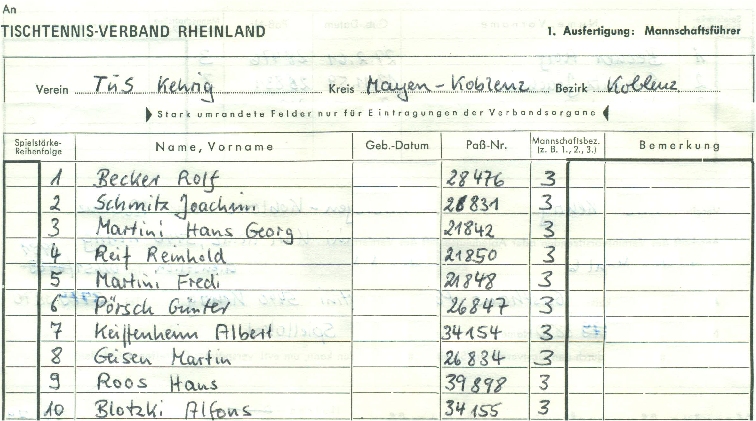 An
TISCHTENNIS-VERBAND RHEINLAND
1. Ausfertigung: Mannschaftsführer
Verein TuS Kehrig Kreis Mayen-Koblenz Bezirk Koblenz
Stark umrandete Felder nur für Eintragungen der Verbandsorgane
Spielstärke-Reihenfolge Name, Vorname Geb.-Datum Paß-Nr. Mannschaftsbez. (z. B. 1., 2., 3.) Bemerkung
1 Becker Rolf 28476 3
2 Schmitz Joachim 28831 3
3 Martini Hans Georg 21842 3
4 Reif Reinhold 21850 3
5 Martini Fredi 21848 3
6 Pörsch Günter 26847 3
7 Keiffenheim Albert 34154 3
8 Geisen Martin 26834 3
9 Roos Hans 39898 3
10 Blotzki Alfons 34155 3